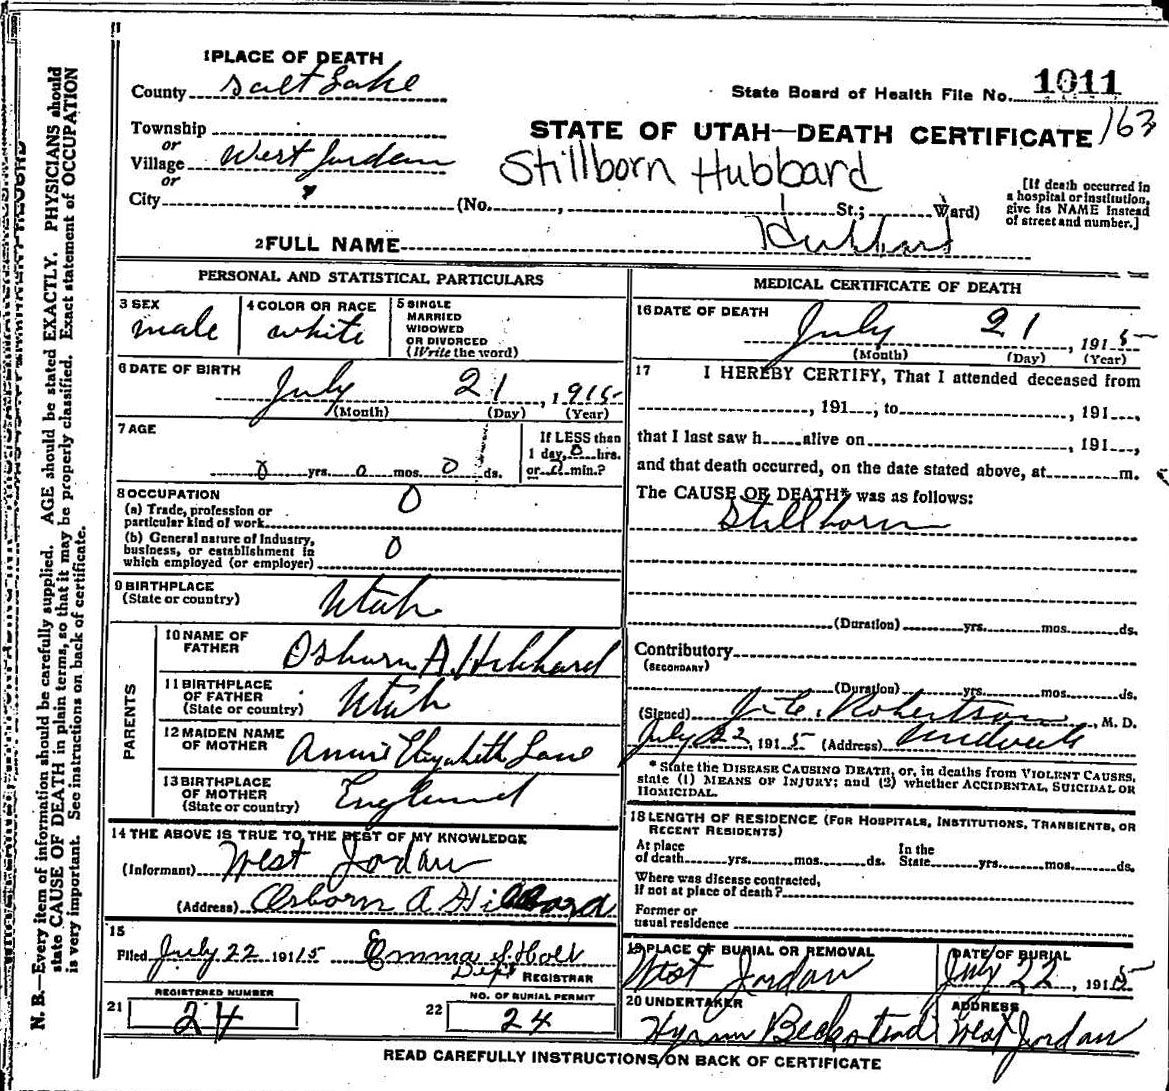 1 PLACE OF DEATH
County Salt Lake
State Board of Health File No. 1011
163
Township
or
Village West Jordan
or
City
STATE OF UTAH—DEATH CERTIFICATE
Stillborn Hubbard
(No. , St.; Ward)
[If death occurred in
a hospital or institution,
give its NAME instead
of street and number.]
2 FULL NAME Hubbard
PERSONAL AND STATISTICAL PARTICULARS
3 SEX
male
4 COLOR OR RACE
white
5 SINGLE
MARRIED
WIDOWED
OR DIVORCED
(Write the word)
6 DATE OF BIRTH
July 21, 1915
(Month) (Day) (Year)
7 AGE
0 yrs. 0 mos. 0 ds.
If LESS than
1 day, 0 hrs.
or 0 min.?
8 OCCUPATION
(a) Trade, profession or
particular kind of work 0
(b) General nature of Industry,
business, or establishment in
which employed (or employer) 0
9 BIRTHPLACE
(State or country) Utah
PARENTS
10 NAME OF
FATHER Osburn A. Hibbard
11 BIRTHPLACE
OF FATHER
(State or country) Utah
12 MAIDEN NAME
OF MOTHER Annie Elizabeth Lane
13 BIRTHPLACE
OF MOTHER
(State or country) England
14 THE ABOVE IS TRUE TO THE BEST OF MY KNOWLEDGE
(Informant) West Jordan
(Address) Osborn A
15
Filed July 22 1915 Emma S. Holt
Dept REGISTRAR
21 REGISTERED NUMBER
24
22 NO. OF BURIAL PERMIT
24
MEDICAL CERTIFICATE OF DEATH
16 DATE OF DEATH
July 21, 1915
(Month) (Day) (Year)
17 I HEREBY CERTIFY, That I attended deceased from
, 191 , to , 191 ,
that I last saw h alive on , 191 ,
and that death occurred, on the date stated above, at m.
The CAUSE OF DEATH* was as follows:
Stillborn
(Duration) yrs. mos. ds.
Contributory
(SECONDARY)
(Duration) yrs. mos. ds.
(Signed) Robertson, M. D.
July 22, 1915 (Address)
* State the DISEASE CAUSING DEATH, or, in deaths from VIOLENT CAUSES,
state (1) MEANS OF INJURY; and (2) whether ACCIDENTAL, SUICIDAL OR
HOMICIDAL.
18 LENGTH OF RESIDENCE (FOR HOSPITALS, INSTITUTIONS, TRANSIENTS, OR
RECENT RESIDENTS)
At place
of death yrs. mos. ds.
In the
State yrs. mos. ds.
Where was disease contracted,
If not at place of death?
Former or
usual residence
19 PLACE OF BURIAL OR REMOVAL
West Jordan
DATE OF BURIAL
July 22, 1915
20 UNDERTAKER
Hyrum Beckstead
ADDRESS
West Jordan
READ CAREFULLY INSTRUCTIONS ON BACK OF CERTIFICATE
N. B.—Every item of information should be carefully supplied. AGE should be stated EXACTLY. PHYSICIANS should
state CAUSE OF DEATH in plain terms, so that it may be properly classified. Exact statement of OCCUPATION
is very important. See instructions on back of certificate.